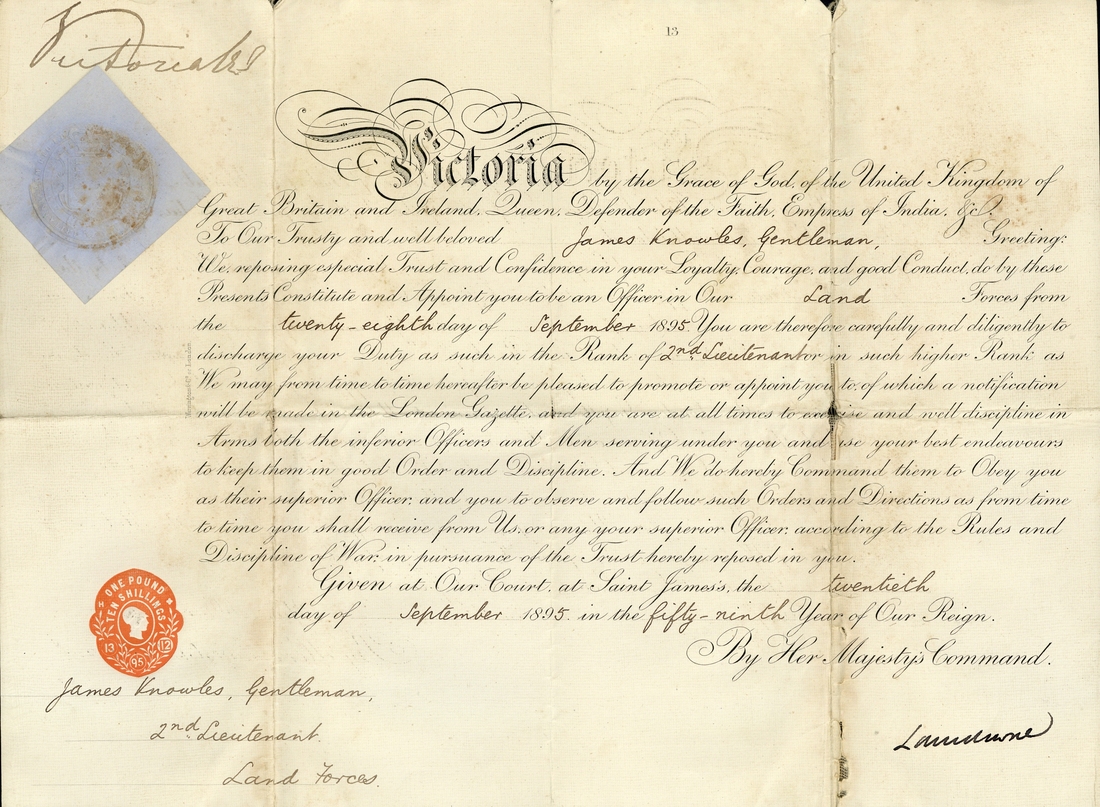 13
Victoria R I
Victoria by the Grace of God, of the United Kingdom of
Great Britain and Ireland, Queen, Defender of the Faith, Empress of India, &c.
To Our Trusty and well beloved James Knowles, Gentleman, Greeting:
We, reposing especial Trust and Confidence in your Loyalty, Courage, and good Conduct, do by these
Presents Constitute and Appoint you to be an Officer in Our Land Forces from
the twenty-eighth day of September 1895. You are therefore carefully and diligently to
discharge your Duty as such in the Rank of 2nd Lieutenant or in such higher Rank as
We may from time to time hereafter be pleased to promote or appoint you to, of which a notification
will be made in the London Gazette, and you are at all times to exercise and well discipline in
Arms both the inferior Officers and Men serving under you and use your best endeavours
to keep them in good Order and Discipline. And We do hereby Command them to Obey you
as their superior Officer, and you to observe and follow such Orders and Directions as from time
to time you shall receive from Us, or any your superior Officer, according to the Rules and
Discipline of War, in pursuance of the Trust hereby reposed in you.
Given at Our Court, at Saint James's, the twentieth
day of September 1895 in the fifty-ninth Year of Our Reign.
By Her Majesty's Command.
ONE POUND
TEN SHILLINGS
13 12
95
James Knowles, Gentleman,
2nd Lieutenant.
Land Forces.
Lansdowne